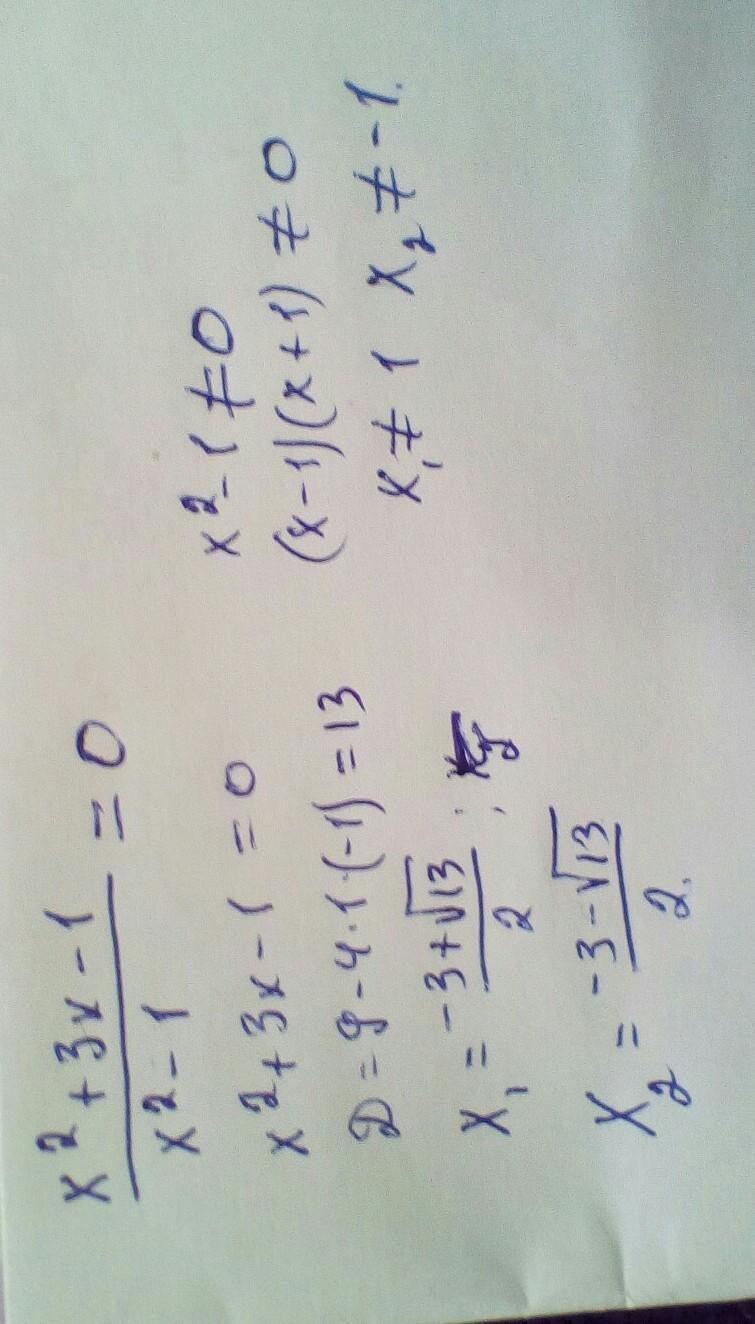 x² + 3x - 1 / x² - 1 = 0
x² + 3x - 1 = 0
D = 9 - 4 · 1 · (-1) = 13
x₁ = -3 + √13 / 2 ;
x₂ = -3 - √13 / 2.
x² - 1 ≠ 0
(x - 1)(x + 1) ≠ 0
x₁ ≠ 1 x₂ ≠ -1.